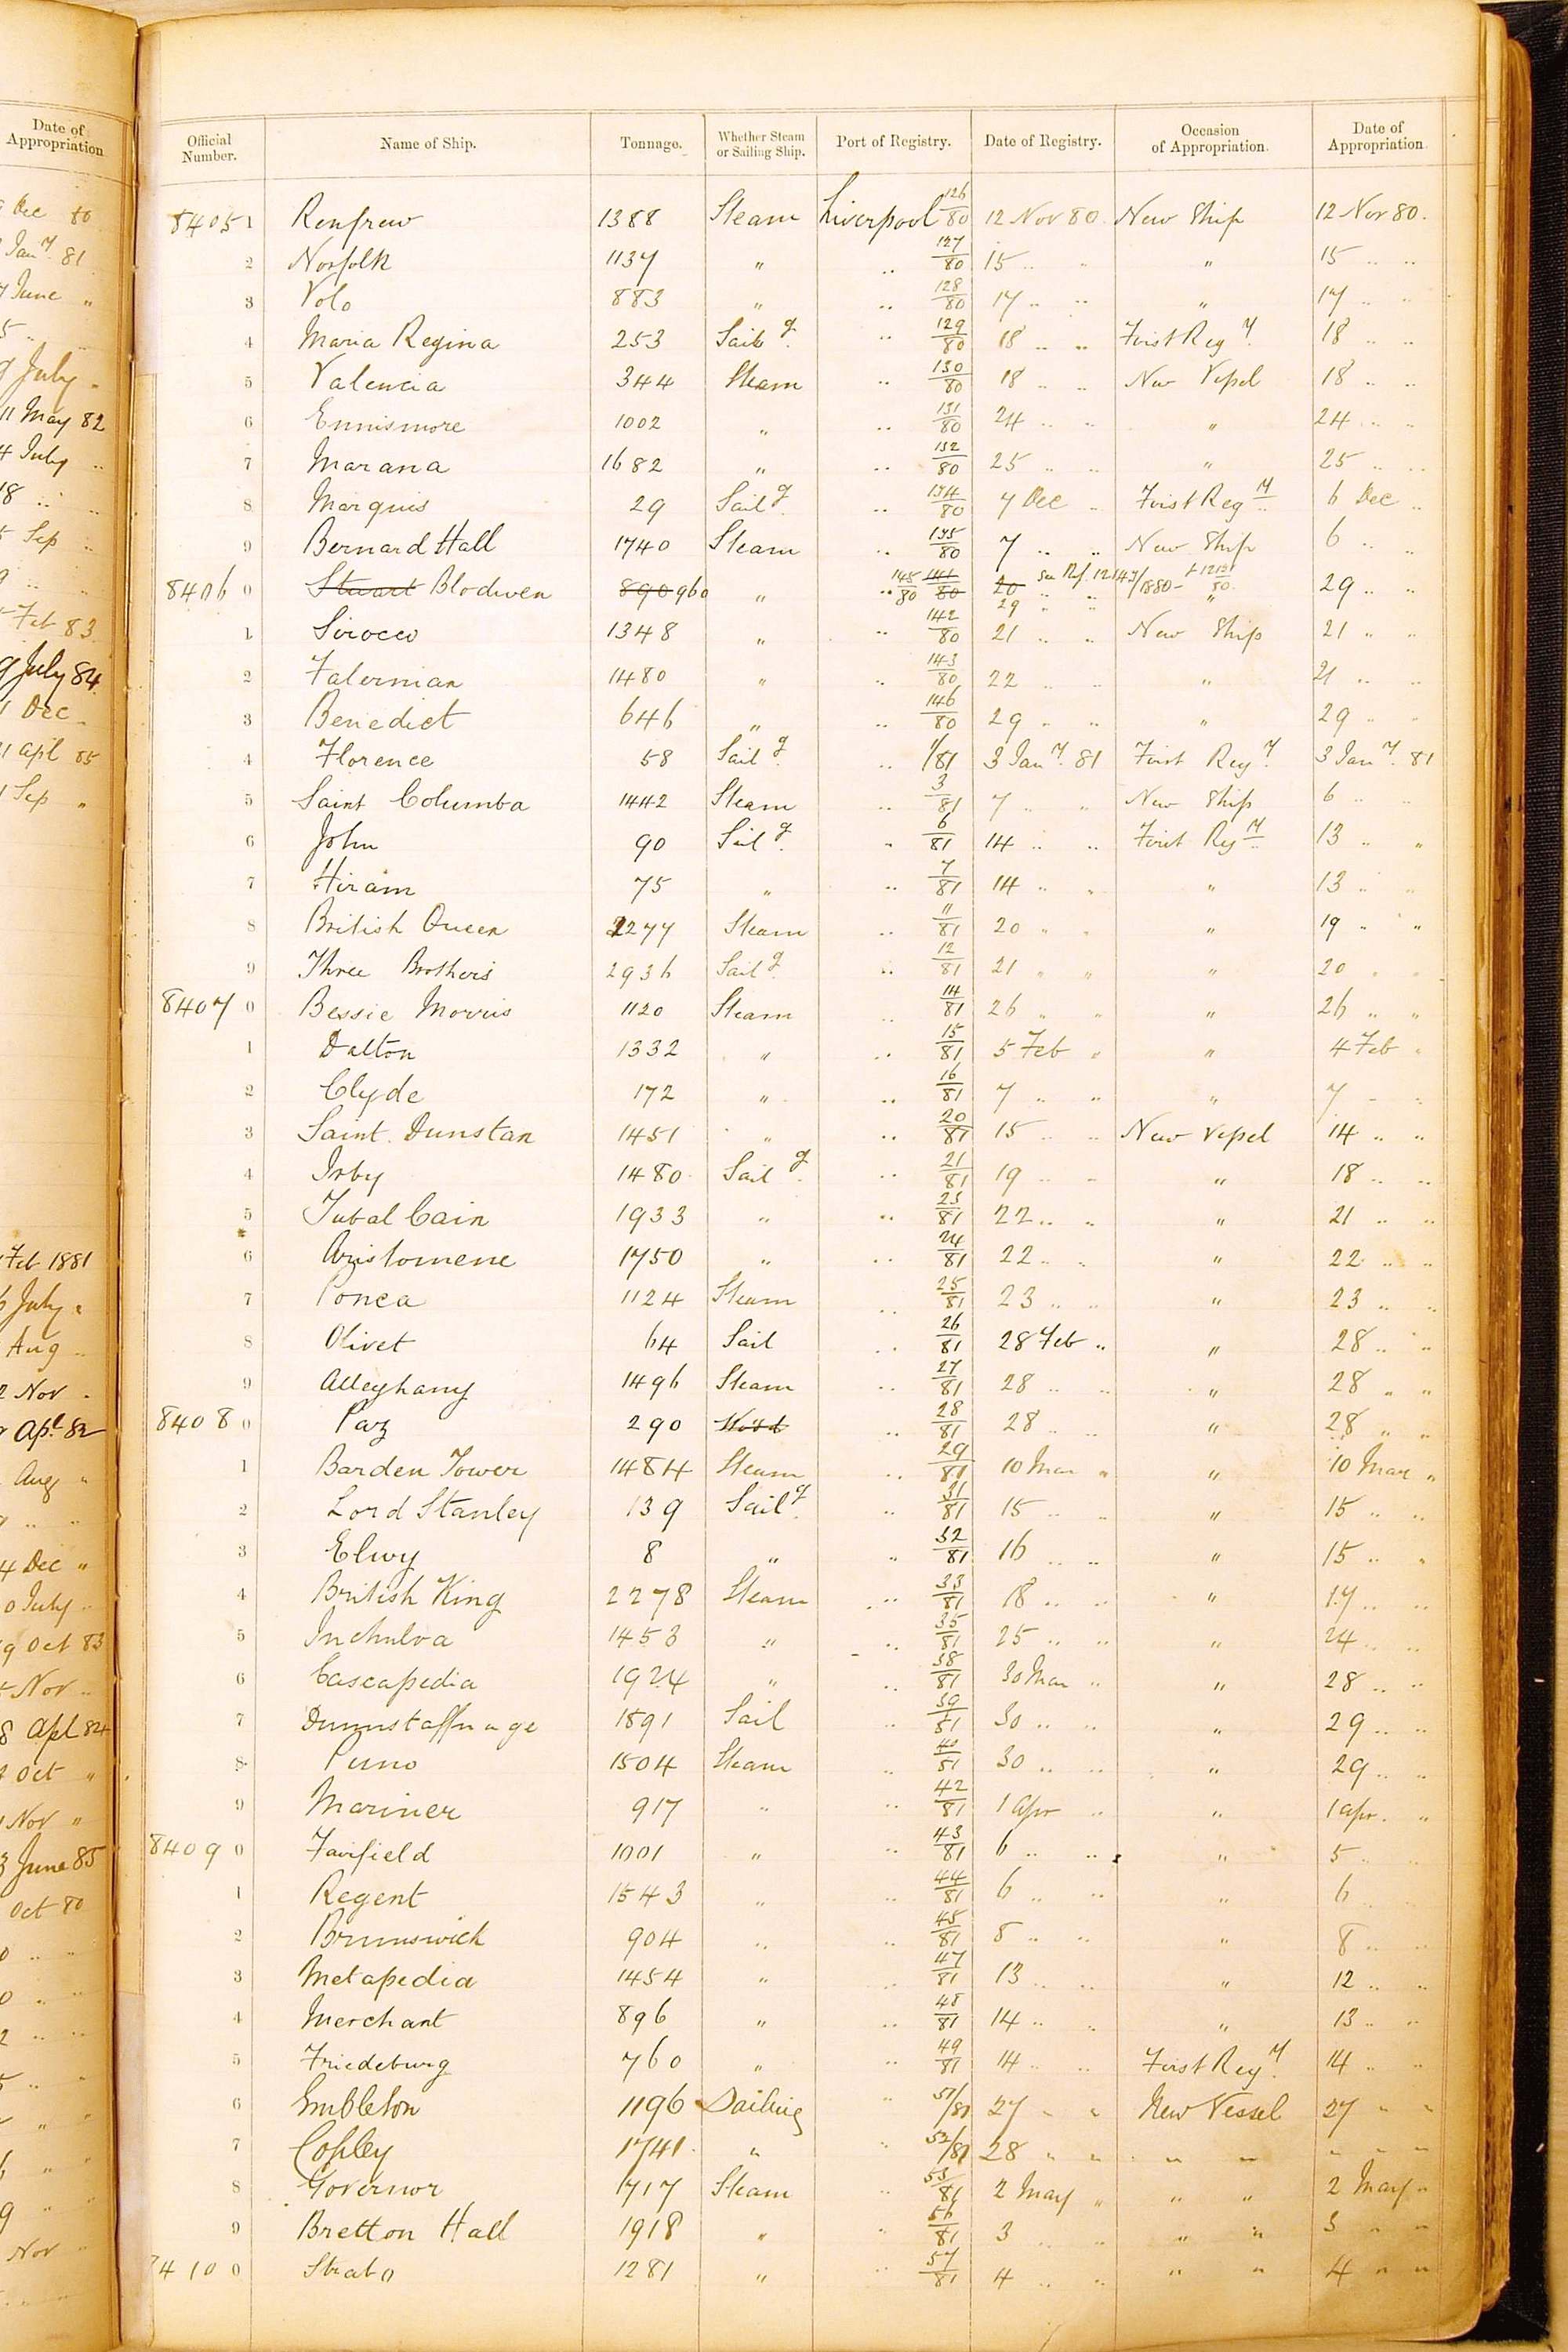 Date of Appropriation
Dec 80
Jany. 81
7 June "
5 " "
9 July "
11 May 82
4 July "
18 " "
5 Sep "
9 " "
Feb 83
9 July 84
1 Dec
21 Apl 85
1 Sep "
Feb 1881
6 July "
Aug "
2 Nov "
Apl. 82
Aug "
4 Dec "
0 July "
19 Oct 83
Nov "
8 Apl 84
Oct "
1 Nov "
3 June 85
Oct 80
Nov "
Official Number. Name of Ship. Tonnage. Whether Steam or Sailing Ship. Port of Registry. Date of Registry. Occasion of Appropriation. Date of Appropriation.
84051 Renfrew 1388 Steam Liverpool 126/80 12 Nov 80. New Ship 12 Nov 80.
2 Norfolk 1137 " " 127/80 15 " " " 15 " "
3 Volo 883 " " 128/80 17 " " " 17 " "
4 Maria Regina 253 Sailg. " 129/80 18 " " First Regy. 18 " "
5 Valencia 344 Steam " 130/80 18 " " New Vessel 18 " "
6 Ennismore 1002 " " 131/80 24 " " " 24 " "
7 Marana 1682 " " 132/80 25 " " " 25 " "
8 Marquis 29 Sailg. " 134/80 7 Dec " First Regy. 6 Dec "
9 Bernard Hall 1740 Steam " 135/80 7 " " New Ship 6 " "
84060 Stuart Blodwen 890 960 " " 145/80 141/80 20 29 " " See Ref. 12143/1880 - " 29 " "
1 Sirocco 1348 " " 142/80 21 " " New Ship 21 " "
2 Falernian 1480 " " 143/80 22 " " " 21 " "
3 Benedict 646 " " 146/80 29 " " " 29 " "
4 Florence 58 Sailg. " 1/81 3 Jany. 81 First Regy. 3 Jany. 81
5 Saint Columba 1442 Steam " 3/81 7 " " New Ship 6 " "
6 John 90 Sailg. " 6/81 14 " " First Regy. 13 " "
7 Hiram 75 " " 7/81 14 " " " 13 " "
8 British Queen 2277 Steam " 11/81 20 " " " 19 " "
9 Three Brothers 2936 Sailg. " 12/81 21 " " " 20 " "
84070 Bessie Morris 1120 Steam " 14/81 26 " " " 26 " "
1 Dalton 1332 " " 15/81 5 Feb " " 4 Feb "
2 Clyde 172 " " 16/81 7 " " " 7 " "
3 Saint Dunstan 1451 " " 20/81 15 " " New Vessel 14 " "
4 Irby 1480 Sailg. " 21/81 19 " " " 18 " "
5 Tubal Cain 1933 " " 23/81 22 " " " 21 " "
6 Aristomene 1750 " " 24/81 22 " " " 22 " "
7 Ponca 1124 Steam " 25/81 23 " " " 23 " "
8 Olivet 64 Sail " 26/81 28 Feb " " 28 " "
9 Alleghany 1496 Steam " 27/81 28 " " " 28 " "
84080 Paz 290 " 28/81 28 " " " 28 " "
1 Barden Tower 1484 Steam " 29/81 10 Mar " " 10 Mar "
2 Lord Stanley 139 Sailg. " 31/81 15 " " " 15 " "
3 Elwy 8 " " 32/81 16 " " " 15 " "
4 British King 2278 Steam " 33/81 18 " " " 17 " "
5 Inchulva 1453 " " 35/81 25 " " " 24 " "
6 Cascapedia 1924 " " 38/81 30 Mar " " 28 " "
7 Dunnstaffnage 1891 Sail " 39/81 30 " " " 29 " "
8 Puno 1504 Steam " 40/81 30 " " " 29 " "
9 Mariner 917 " " 42/81 1 Apr " " 1 Apr. "
84090 Fairfield 1001 " " 43/81 6 " " " 5 " "
1 Regent 1543 " " 44/81 6 " " " 6 " "
2 Brunswick 904 " " 45/81 8 " " " 8 " "
3 Metapedia 1454 " " 47/81 13 " " " 12 " "
4 Merchant 896 " " 48/81 14 " " " 13 " "
5 Friedeburg 760 " " 49/81 14 " " First Regy. 14 " "
6 Embleton 1196 Sailing " 51/81 27 " " New Vessel 27 " "
7 Copley 1741 " " 52/81 28 " " " " " " "
8 Governor 1717 Steam " 53/81 2 May " " " 2 May "
9 Bretton Hall 1918 " " 56/81 3 " " " " 3 " "
84100 Strabo 1281 " " 57/81 4 " " " " 4 " "